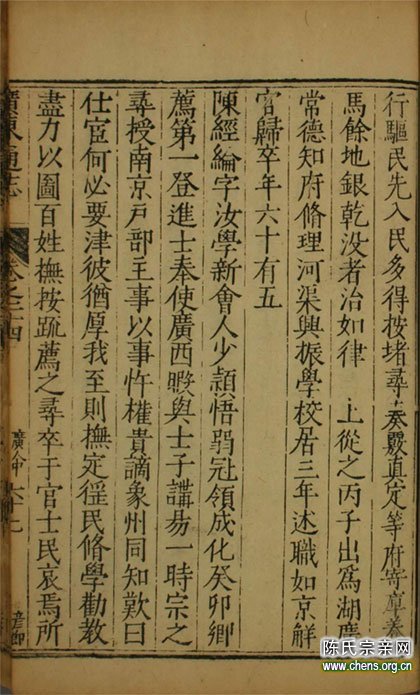 行驅民先入民多得按堵尋奏覈直定等府寄莊養
馬餘地銀乾没者治如律 上從之丙子出爲湖廣
常德知府脩理河渠興振學校居三年述職如京觧
官歸卒年六十有五
陳經綸字汝學新會人少頴悟弱冠領成化癸卯鄉
薦第一登進士奉使廣西暇與士子講易一時宗之
尋授南京戸部主事以事忤權貴謫象州同知歎曰
仕宦何必要津彼猶厚我至則撫定徭民脩學勸教
盡力以圖百姓撫按疏薦之尋卒于官士民哀焉所
廣東通志
卷之二十四
陈氏宗亲网
www.chens.org.cn